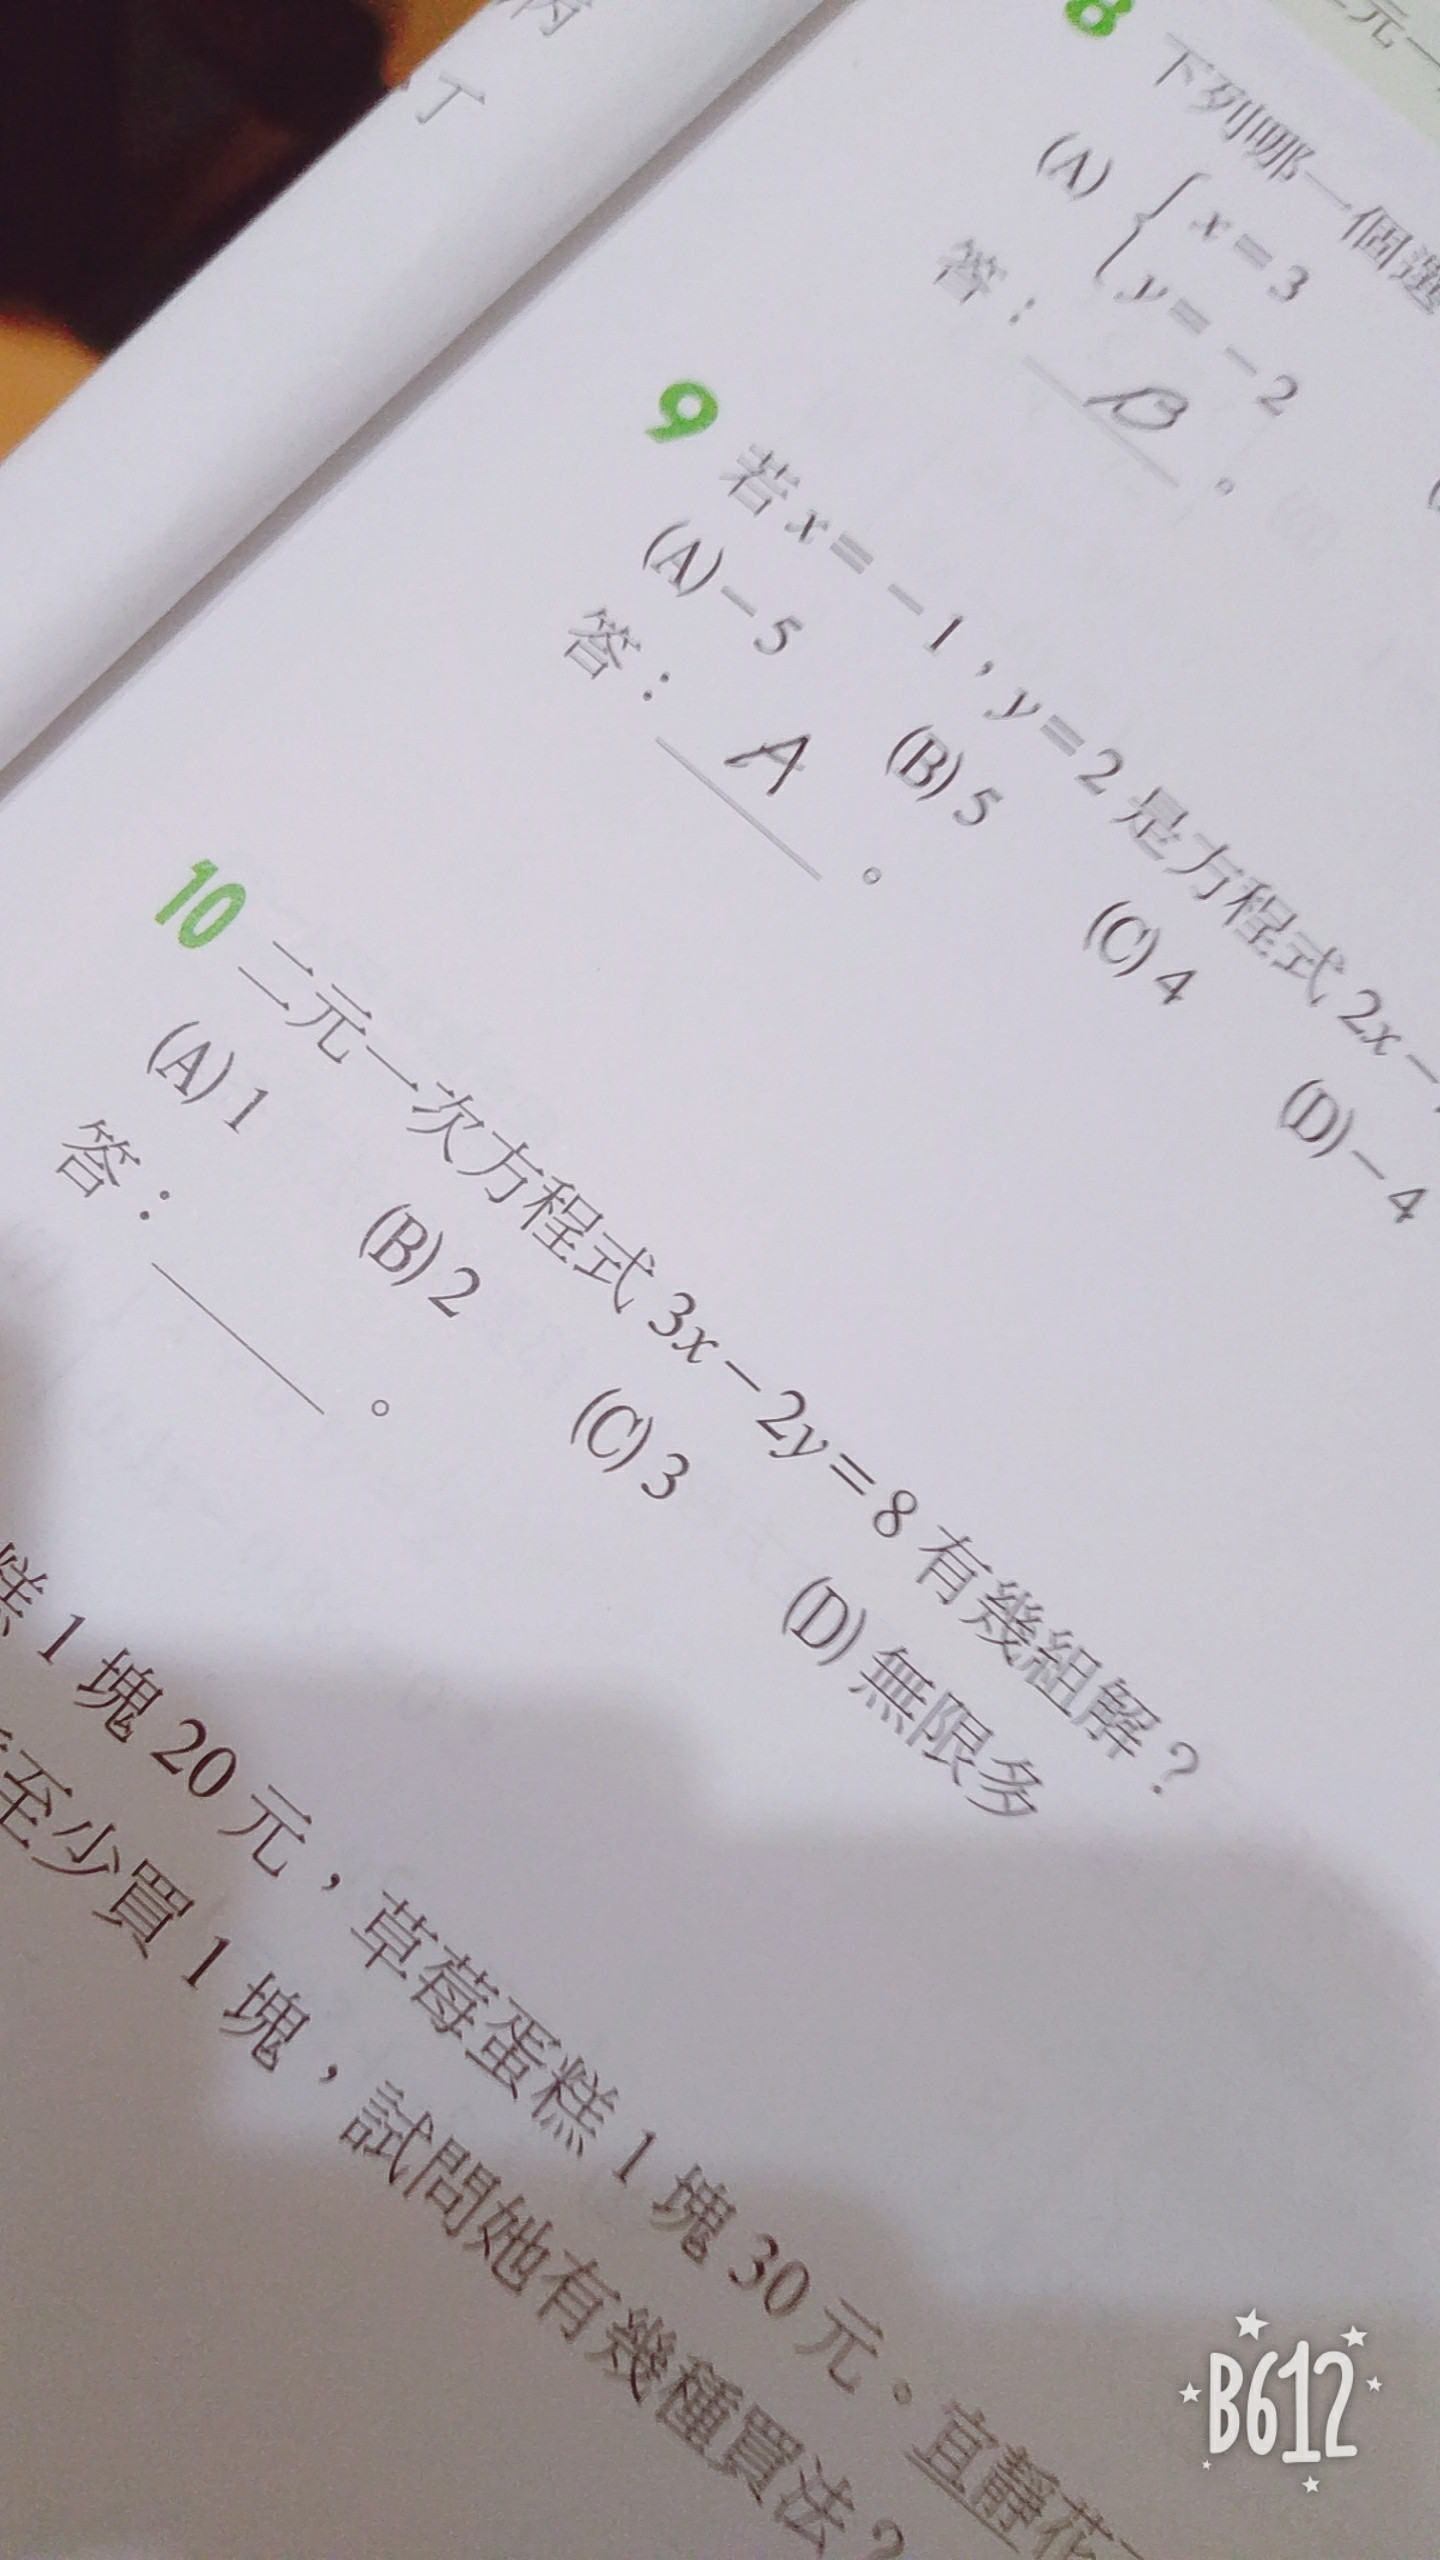 丁
8 下列哪一個選
(A) { x = 3
y = -2
答：B。
9 若 x = -1，y = 2 是方程式 2x -
(A) -5 (B) 5 (C) 4 (D) -4
答：A。
10 二元一次方程式 3x - 2y = 8 有幾組解？
(A) 1 (B) 2 (C) 3 (D) 無限多
答：＿＿。
糕 1 塊 20 元，草莓蛋糕 1 塊 30 元。宜靜花
至少買 1 塊，試問她有幾種買法？
B612